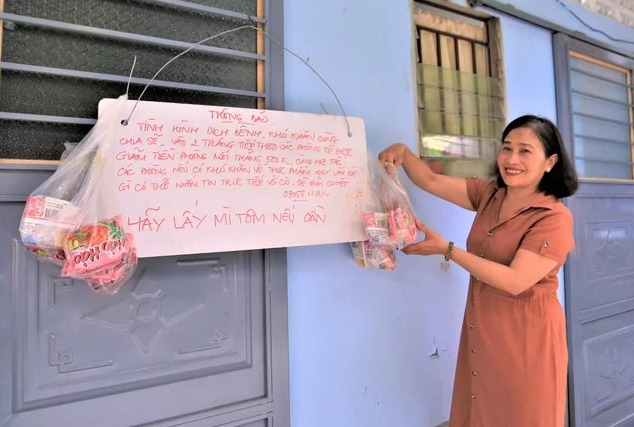 THÔNG BÁO
TÌNH HÌNH DỊCH BỆNH. KHÓ KHĂN CÙNG
CHIA SẺ. VÀO 2 THÁNG TIẾP THEO CÁC PHÒNG SẼ ĐƯỢC
GIẢM TIỀN PHÒNG MỖI THÁNG 500K. CÙNG HỢP TÁC
CÁC PHÒNG NẾU CÓ KHÓ KHĂN VỀ THỰC PHẨM HAY VẤN ĐỀ
GÌ CÓ THỂ NHẮN TIN TRỰC TIẾP CÔ. SẼ GIẢI QUYẾT
HÃY LẤY MÌ TÔM NẾU CẦN
HẢO HẢO